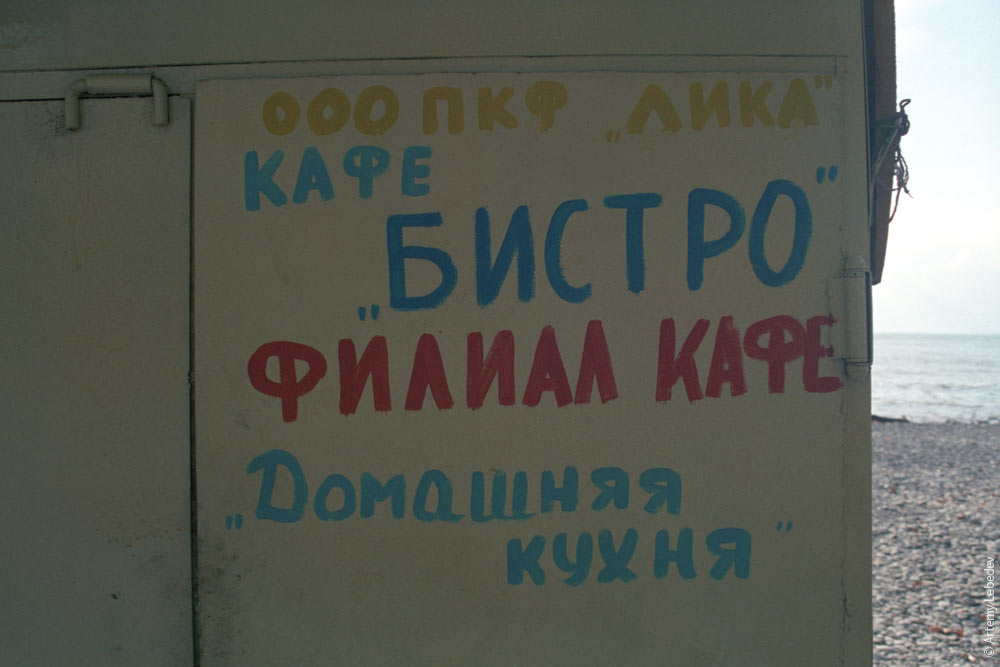 ООО ПКФ „ЛИКА”
КАФЕ
„БИСТРО”
ФИЛИАЛ КАФЕ
„Домашняя
кухня”
© Artemy Lebedev